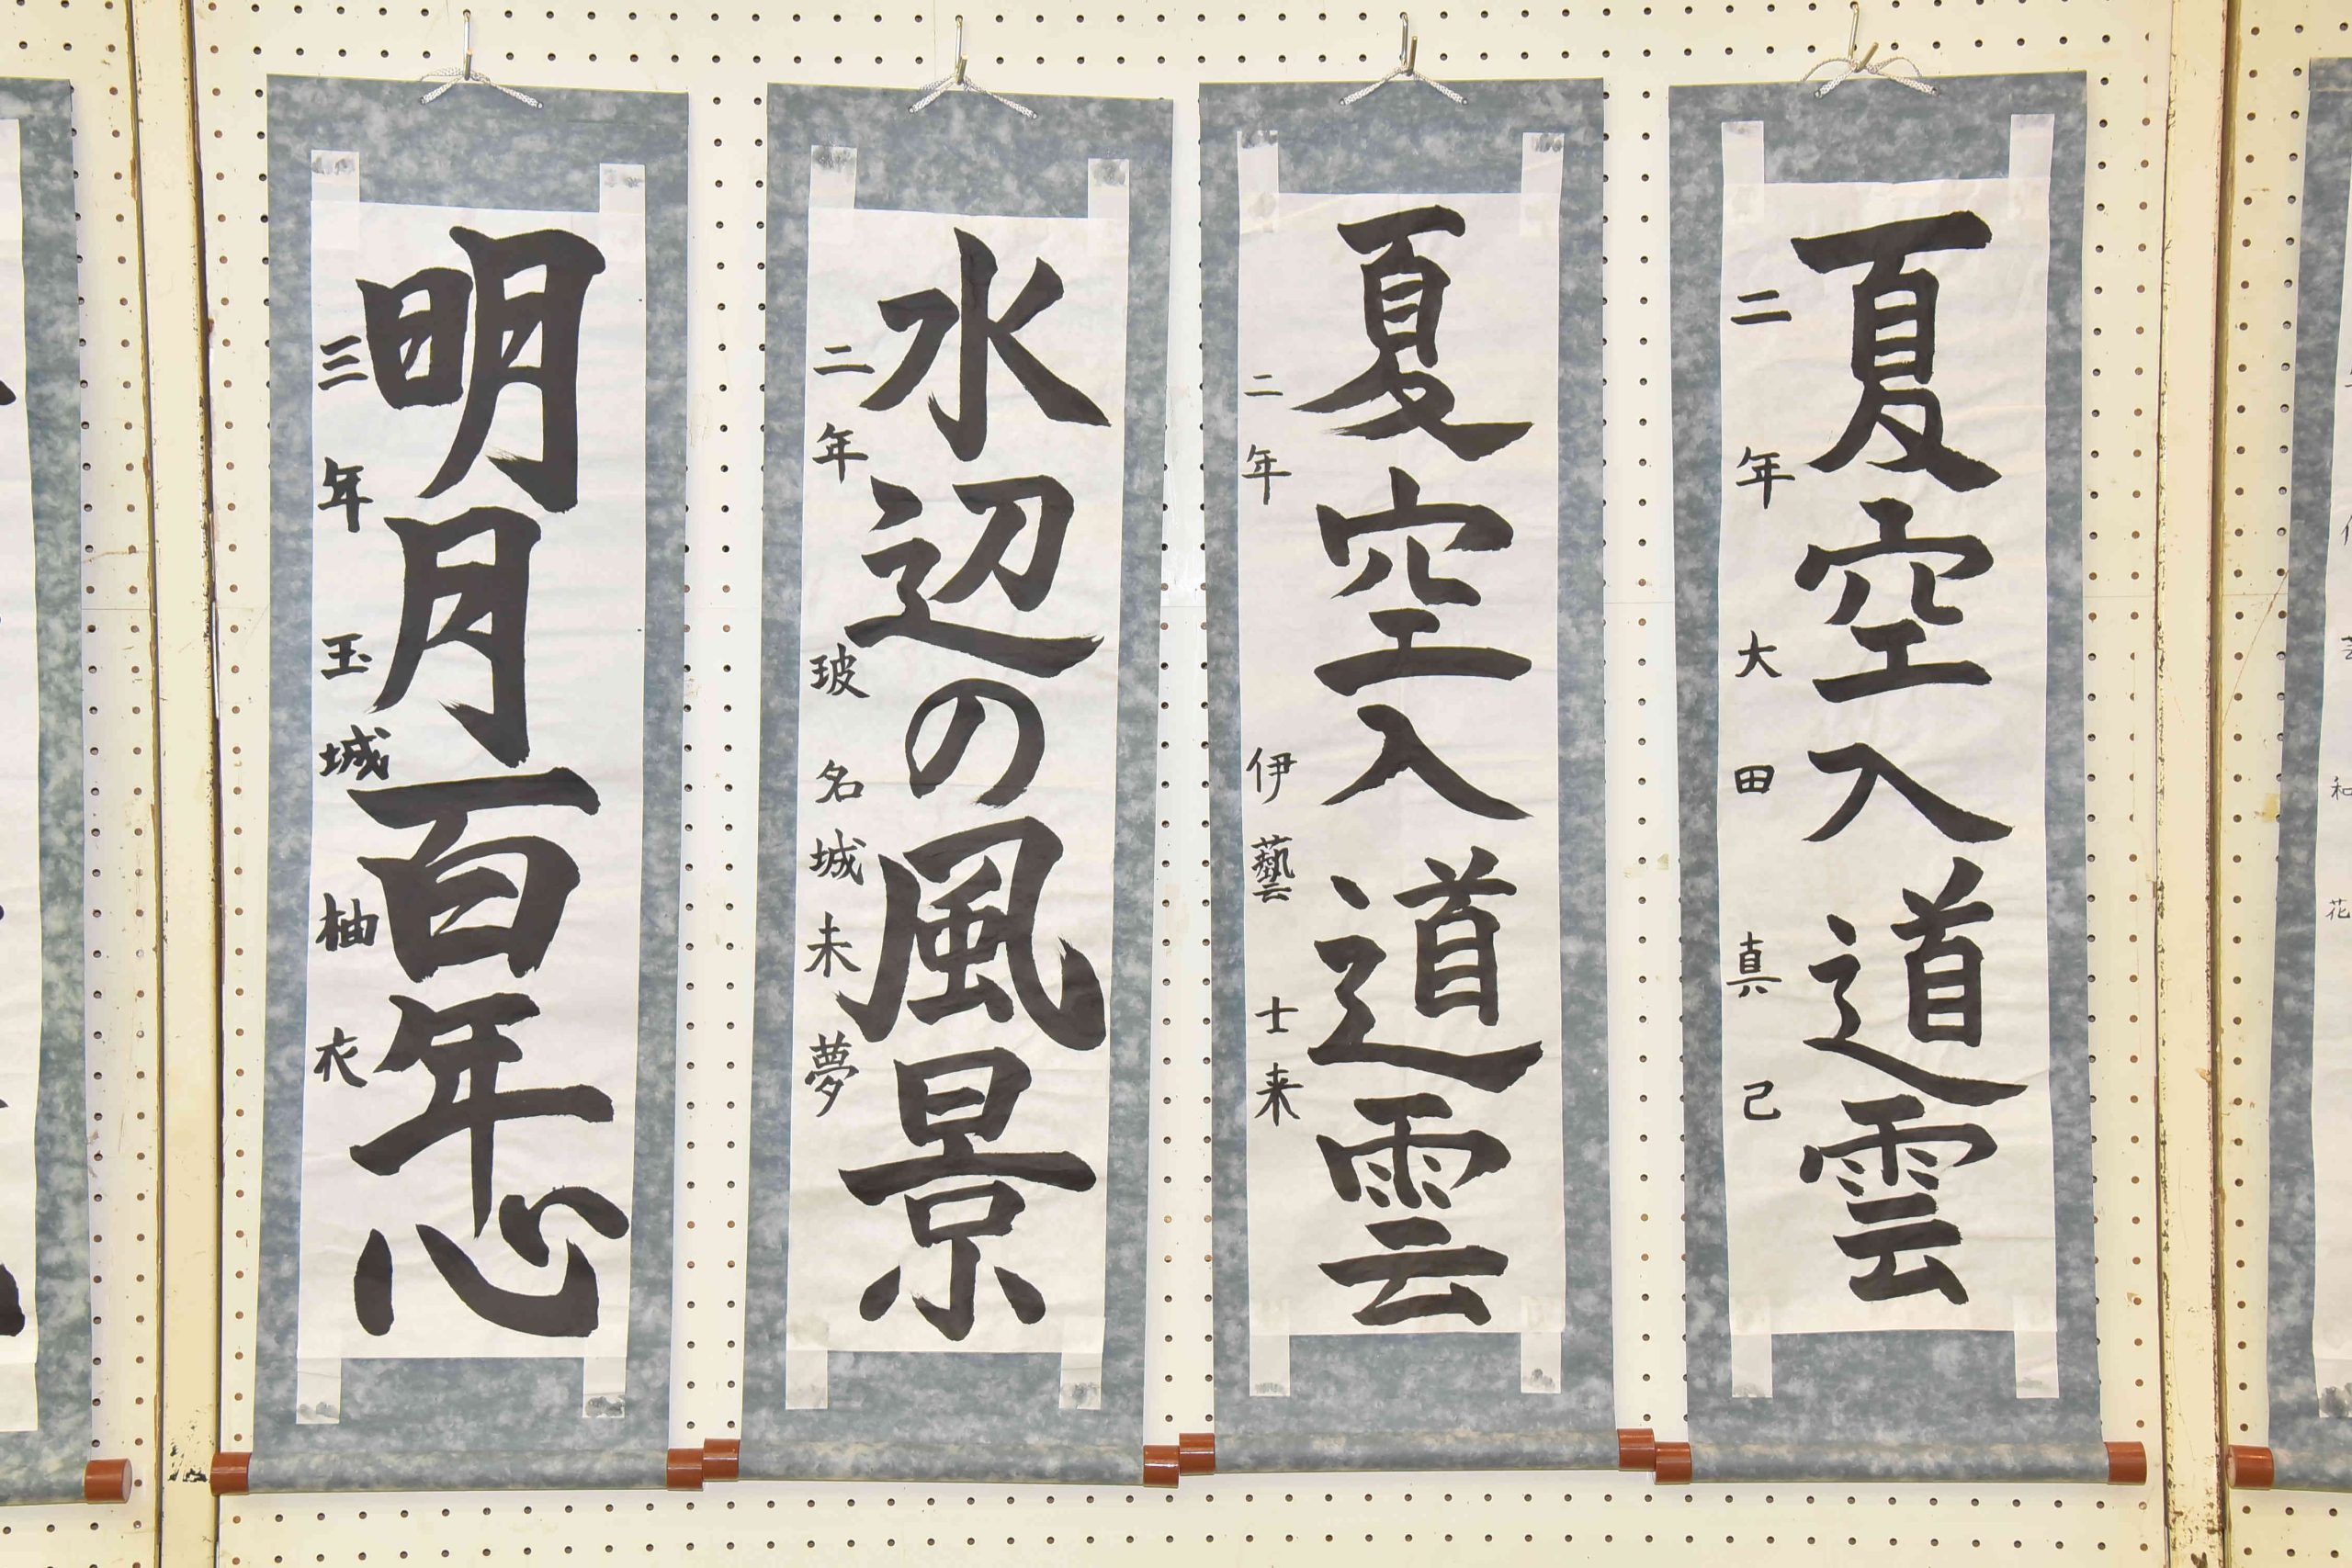 夏空入道雲
二年 大田真己
夏空入道雲
二年 伊藝士来
水辺の風景
二年 玻名城未夢
明月百年心
三年 玉城柚衣